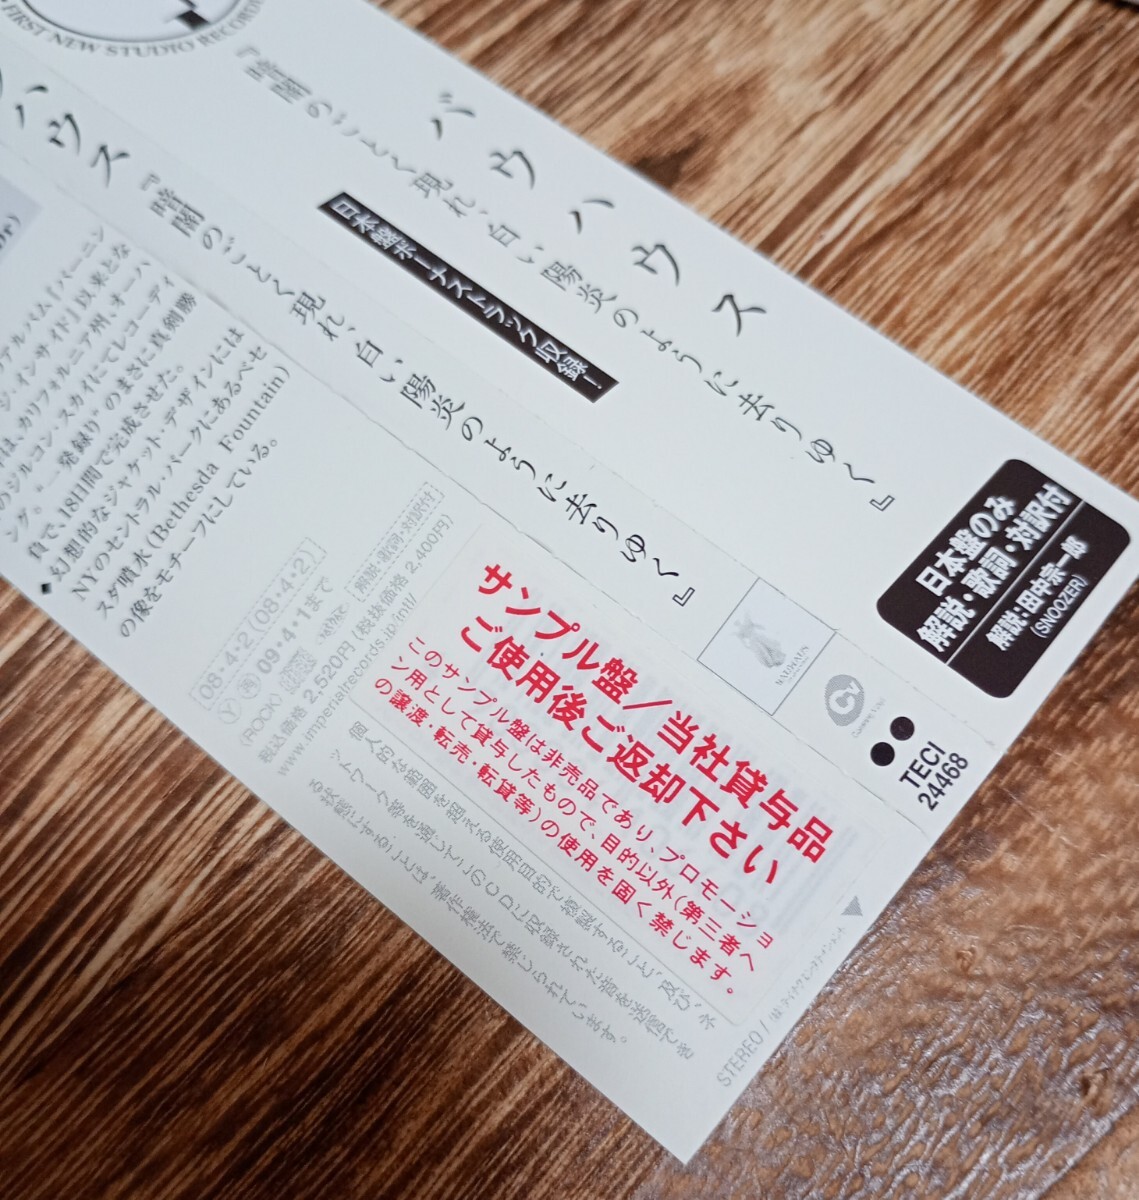 FIRST NEW STUDIO RECORDI
バウハウス
『暗闇のごとく現れ、白い陽炎のように去りゆく』
日本盤ボーナストラック収録!
日本盤のみ
解説・歌詞・対訳付
解説:田中宗一郎
(SNOOZER)
バウハウス
『暗闇のごとく現れ、白い陽炎のように去りゆく』
BAUHAUS
Cooking Vinyl
TECI
24468
アルバム『バーニン
グ・インサイド』以来とな
は、カリフォルニア州・オーハ
のジルコン・スカイにてレコーディ
ング。“一発録り”のまさに真剣勝
負で、18日間で完成させた。
◆幻想的なジャケット・デザインには
NYのセントラル・パークにあるベセ
スダ噴水(Bethesda Fountain)
の像をモチーフにしている。
08・4・2 (08・4・2)
Ⓨ 再 09・4・1まで
(ROCK)
解説・歌詞・対訳付
税込価格 2,520円 (税抜価格 2,400円)
www.imperialrecords.jp/intl/
サンプル盤/当社貸与品
ご使用後ご返却下さい
このサンプル盤は非売品であり、プロモーショ
ン用として貸与したもので、目的以外(第三者へ
の譲渡・転売・転貸等)の使用を固く禁じます。
個人的な範囲を超える使用目的で複製すること、及び、ネ
ットワーク等を通じてこのCDに収録された音を送信でき
る状態にすることは、著作権法で禁じられています。
STEREO/